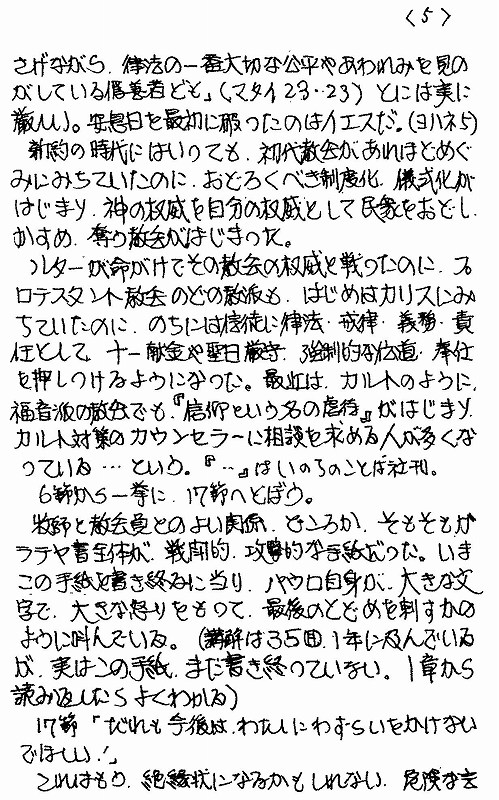 〈5〉
さげながら、律法の一番大切な公平やあわれみを見の
がしている偽善者ども」(マタイ23・23) とには実に
厳しい。安息日を最初に破ったのはイエスだ。(ヨハネ5)
新約の時代にはいっても、初代教会があれほどめぐ
みにみちていたのに、おどろくべき制度化、儀式化が
はじまり、神の権威を自分の権威として民衆をおどし、
かすめ、奪う教会がはじまった。
ルターが命がけでその教会の権威と戦ったのに、プ
ロテスタント教会のどの教派も、はじめはカリスにみ
ちていたのに、のちには信徒に律法・戒律・義務・責
任として、十一献金や聖日厳守、強制的な伝道・奉仕
を押しつけるようになった。最近は、カルトのように、
福音派の教会でも、『信仰という名の虐待』がはじまり、
カルト対策のカウンセラーに相談を求める人が多くな
っている…という。『…』はいのちのことば社刊。
6節から一挙に、17節へとぼう。
牧師と教会員とのよい関係、ところが、そもそもガ
ラテヤ書全体が、戦闘的、攻撃的な手紙だった。いま
この手紙を書き終るに当り、パウロ自身が、大きな文
字で、大きな怒りをもって、最後のとどめを刺すかの
ように叫んでいる。(講解は35回、1年に及んでいる
が、実はこの手紙、まだ書き終っていない。1章から
読みなおしたらよくわかる)
17節「だれも今後は、わたしにわずらいをかけない
でほしい!」
これはもう、絶縁状になるかもしれない、危険な言